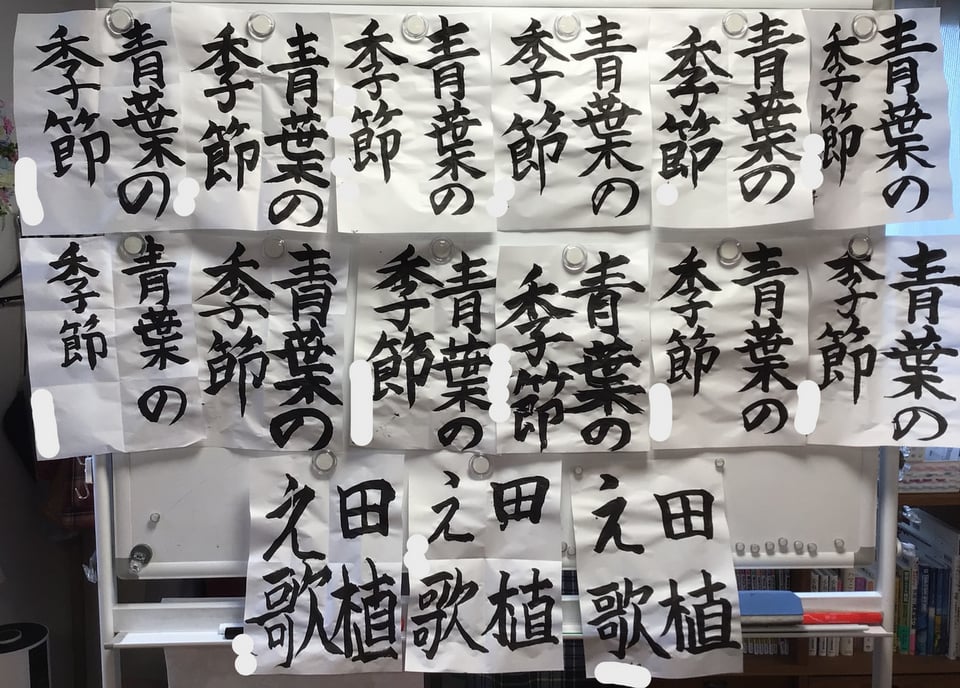 青葉の
季節
青葉の
季節
青葉の
季節
青葉の
季節
青葉の
季節
青葉の
季節
青葉の
季節
青葉の
季節
青葉の
季節
青葉の
季節
青葉の
季節
青葉の
季節
田植
え歌
田植
え歌
田植
え歌